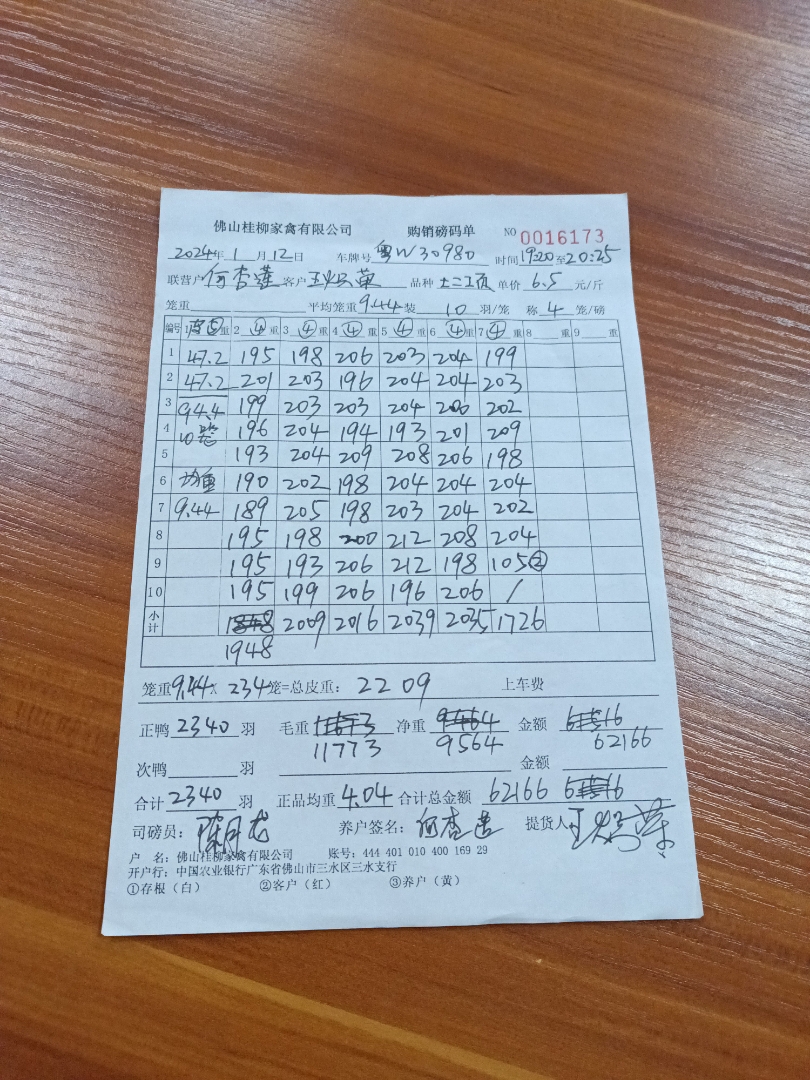 佛山桂柳家禽有限公司 购销磅码单 NO 0016173
2024年1月12日 车牌号 粤W30980 时间19:20至20:25
联营户 何杏莲 客户 王 品种 土二 单价 6.5 元/斤
笼重 平均笼重9.44装 10 羽/笼 称 4 笼/磅
编号 1皮⑤重 2 ④重 3 ④重 4 ④重 5 ④重 6 ④重 7 ④重 8 重 9 重
1 47.2 195 198 206 203 204 199
2 47.2 201 203 196 204 204 203
3 94.4 199 203 203 204 206 202
4 10笼 196 204 194 193 201 209
5 193 204 209 208 206 198
6 均重 190 202 198 204 204 204
7 9.44 189 205 198 203 204 202
8 195 198 200 212 208 204
9 195 193 206 212 198 105②
10 195 199 206 196 206 /
小计 1848 2009 2016 2039 2035 1726
1948
笼重9.44 x 234笼=总皮重: 2209 上车费
正鸭 2340 羽 毛重 净重 9464 金额 61516
11773 9564 62166
次鸭 羽 金额
合计 2340 羽 正品均重 4.04 合计总金额 62166 61516
司磅员: 陈月龙 养户签名: 何杏莲 提货人 王
户 名: 佛山桂柳家禽有限公司 账号: 444 401 010 400 169 29
开户行: 中国农业银行广东省佛山市三水区三水支行
①存根(白) ②客户(红) ③养户(黄)